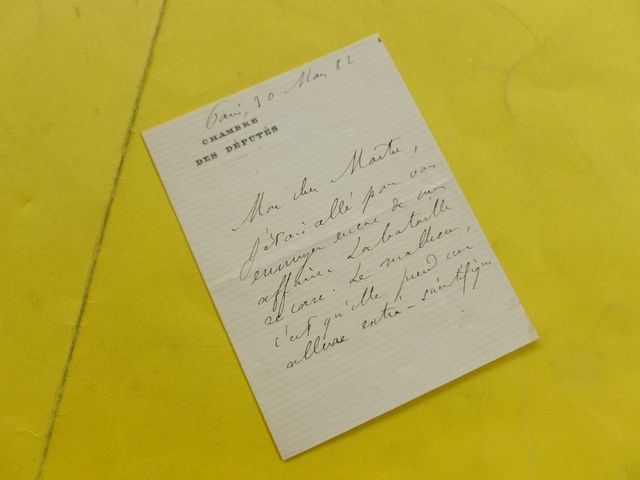 Paris, 30 Mai 82
CHAMBRE
DES DÉPUTÉS
Mon cher Maître,
J'étais allé pour vous
ennuyer encore de mon
affaire. La bataille
se corse. Le malheur,
c'est qu'elle prend une
allure extra-scientifique